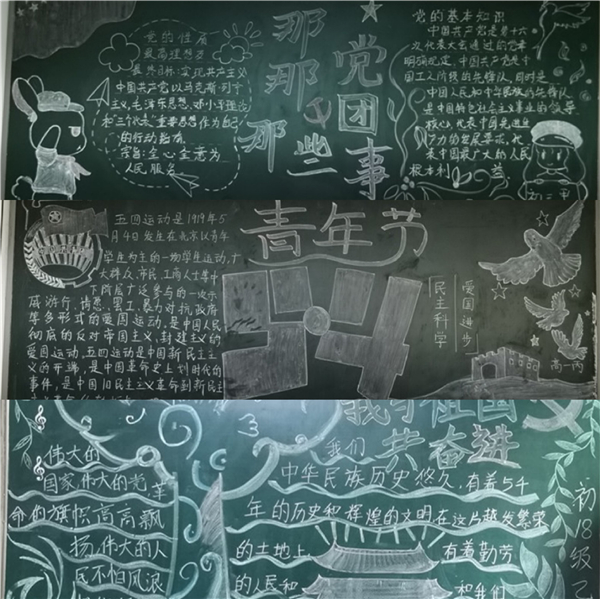 党的性质
最高理想及
最终目标:实现共产主义
中国共产党以马克斯列宁
主义,毛泽东思想,邓小平理论
和“三个代表”重要思想作为自己
的行动指南.
宗旨:全心全意为
人民服务
那那那些
党团事
党的基本知识
中国共产党是第十六
次代表大会通过的党章
明确规定,中国共产党是中
国工人阶级的先锋队,同时是
中国人民和中华民族的先锋队
是中国特色社会主义事业的领导
核心,代表中国先进生
产力的发展要求,代
表中国最广大的人民
根本利益
初二甲
五四运动是1919年5
月4日发生在北京以青年
学生为主的一场学生运动,广
大群众,市民,工商人士等中
下阶层广泛参与的一次示
威游行,请愿,罢工,暴力对抗政府
等多形式的爱国运动,是中国人民
彻底的反对帝国主义,封建主义的
爱国运动,五四运动是中国新民主主
义的开端,是中国革命史上划时代的
事件,是中国旧民主主义革命到新民主
青年节
爱国进步
民主科学
高一丙
我与祖国
共奋进
伟大的
国家,伟大的党,革
命的旗帜高高飘
扬,伟大的人
民不怕风浪
我们
中华民族历史悠久,有着5千
年的历史和辉煌的文明在这片越发繁荣
的土地上 有着勤劳
的人民和 和我们
初18级乙